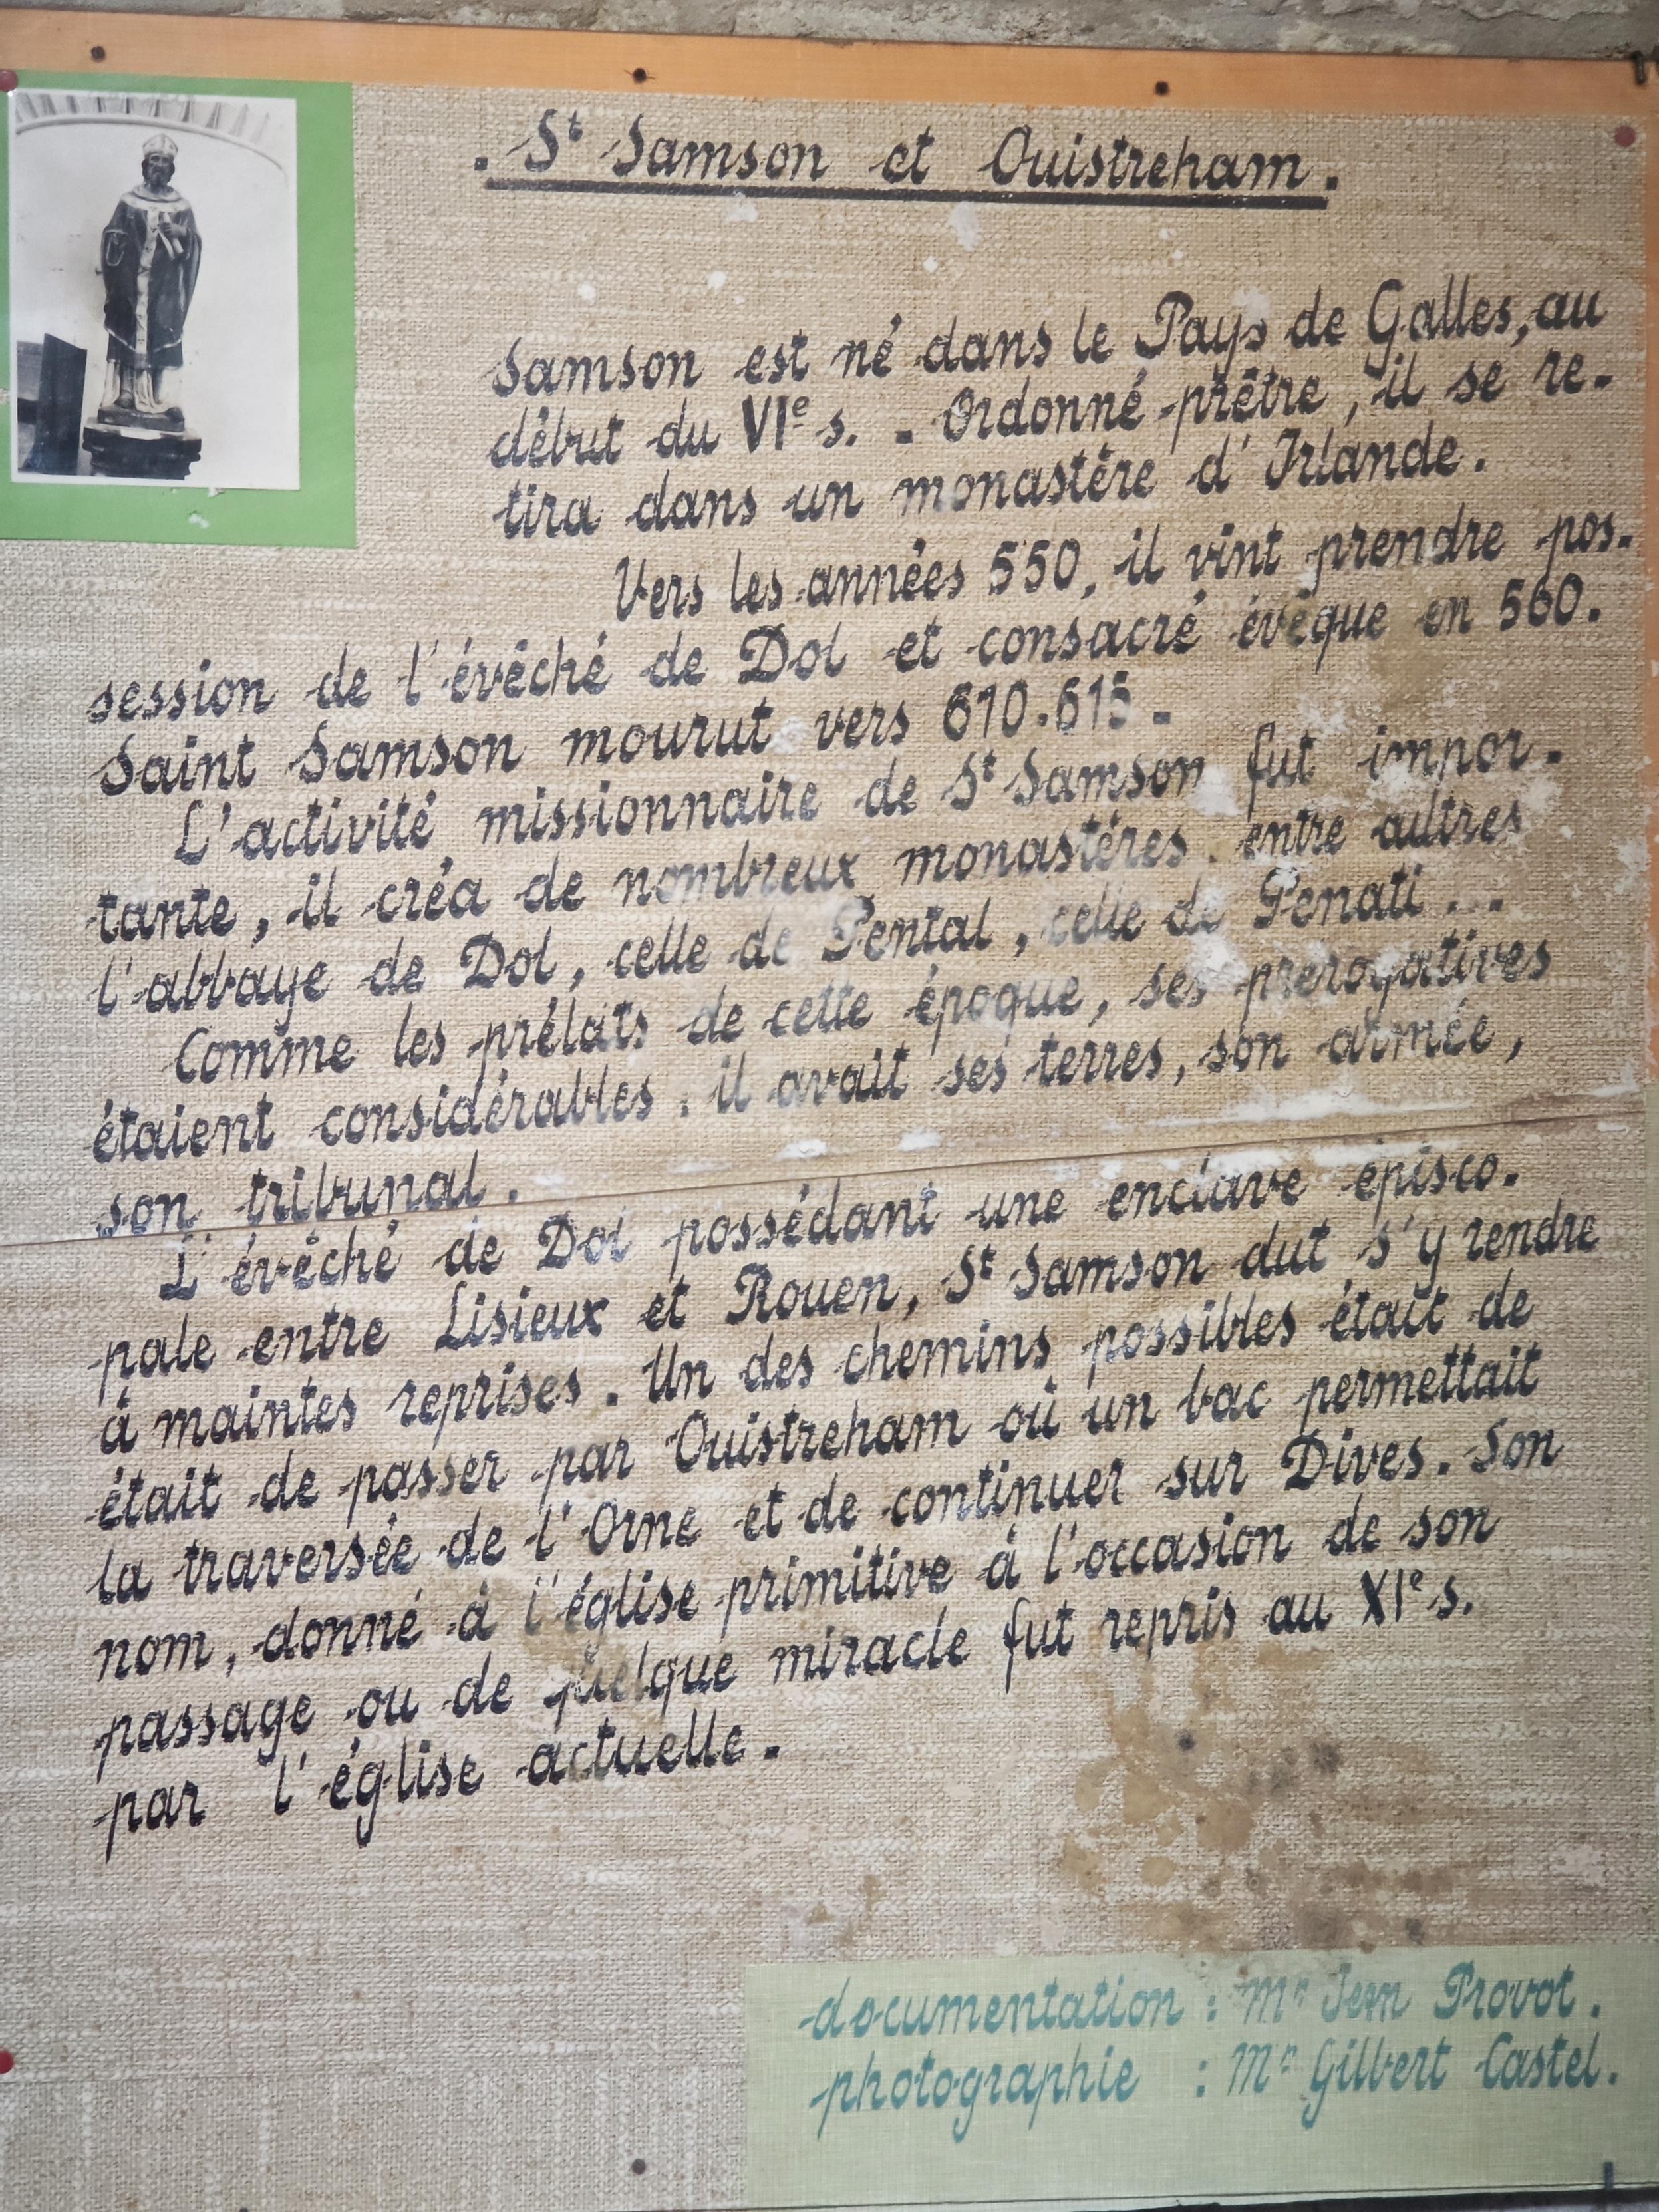 . St Samson et Ouistreham.
Samson est né dans le Pays de Galles, au
début du VIe s. - Ordonné prêtre, il se re-
tira dans un monastère d'Irlande.
Vers les années 550, il vint prendre pos-
session de l'évêché de Dol et consacré évêque en 560.
Saint Samson mourut vers 610-615.
L'activité missionnaire de St Samson fut impor-
tante, il créa de nombreux monastères. entre autres
l'abbaye de Dol, celle de Pental, celle de Penati ...
Comme les prélats de cette époque, ses prérogatives
étaient considérables : il avait ses terres, son armée,
son tribunal.
L'évêché de Dol possédant une enclave épisco-
pale entre Lisieux et Rouen, St Samson dut s'y rendre
à maintes reprises. Un des chemins possibles était de
était de passer par Ouistreham où un bac permettait
la traversée de l'Orne et de continuer sur Dives. Son
nom, donné à l'église primitive à l'occasion de son
passage ou de quelque miracle fut repris au XIe s.
par l'église actuelle.
documentation : Mr Jean Provot.
photographie : Mr Gilbert Castel.